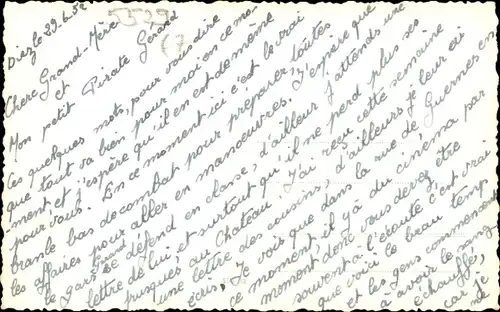 Diez le 29.6.52
Chère Grand-Mère
et
Mon petit Pirate Gérard
Ces quelques mots, pour vous dire
que tout va bien pour moi en ce mo-
ment et j'espère qu'il en est de même
pour vous. En ce moment-ci c'est le vrai
branle bas de combat pour préparer toutes
les affaires pour aller en manœuvres. J'espère que
le gars Gérard se défend en classe, d'ailleur j'attends une
lettre de lui, et surtout qu'il ne perd plus ses
frusques au Chateau. J'ai reçu cette semaine
une lettre des cousins, d'ailleurs je leur ai
écris, Je vois que dans la rue de Guernes en
ce moment, il y a du cinéma par
moment donc vous devez être
souvent à l'écoute c'est vrai
que voici le beau temps
et les gens commencent
à avoir le sang
échauffé,
car je